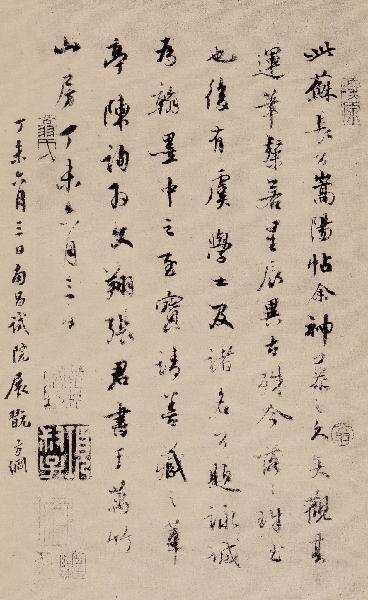 此蘇長公嵩陽帖余神慕之久矣觀其
運筆粲若星辰異古殊今落落珠玉
也後有虞學士及諸名公題詠誠
為翰墨中之至寶請善藏之華
亭陳詢為文翔張君書于萬竹
山房丁未六月三日
丁未六月三日南昌試院展翫方綱